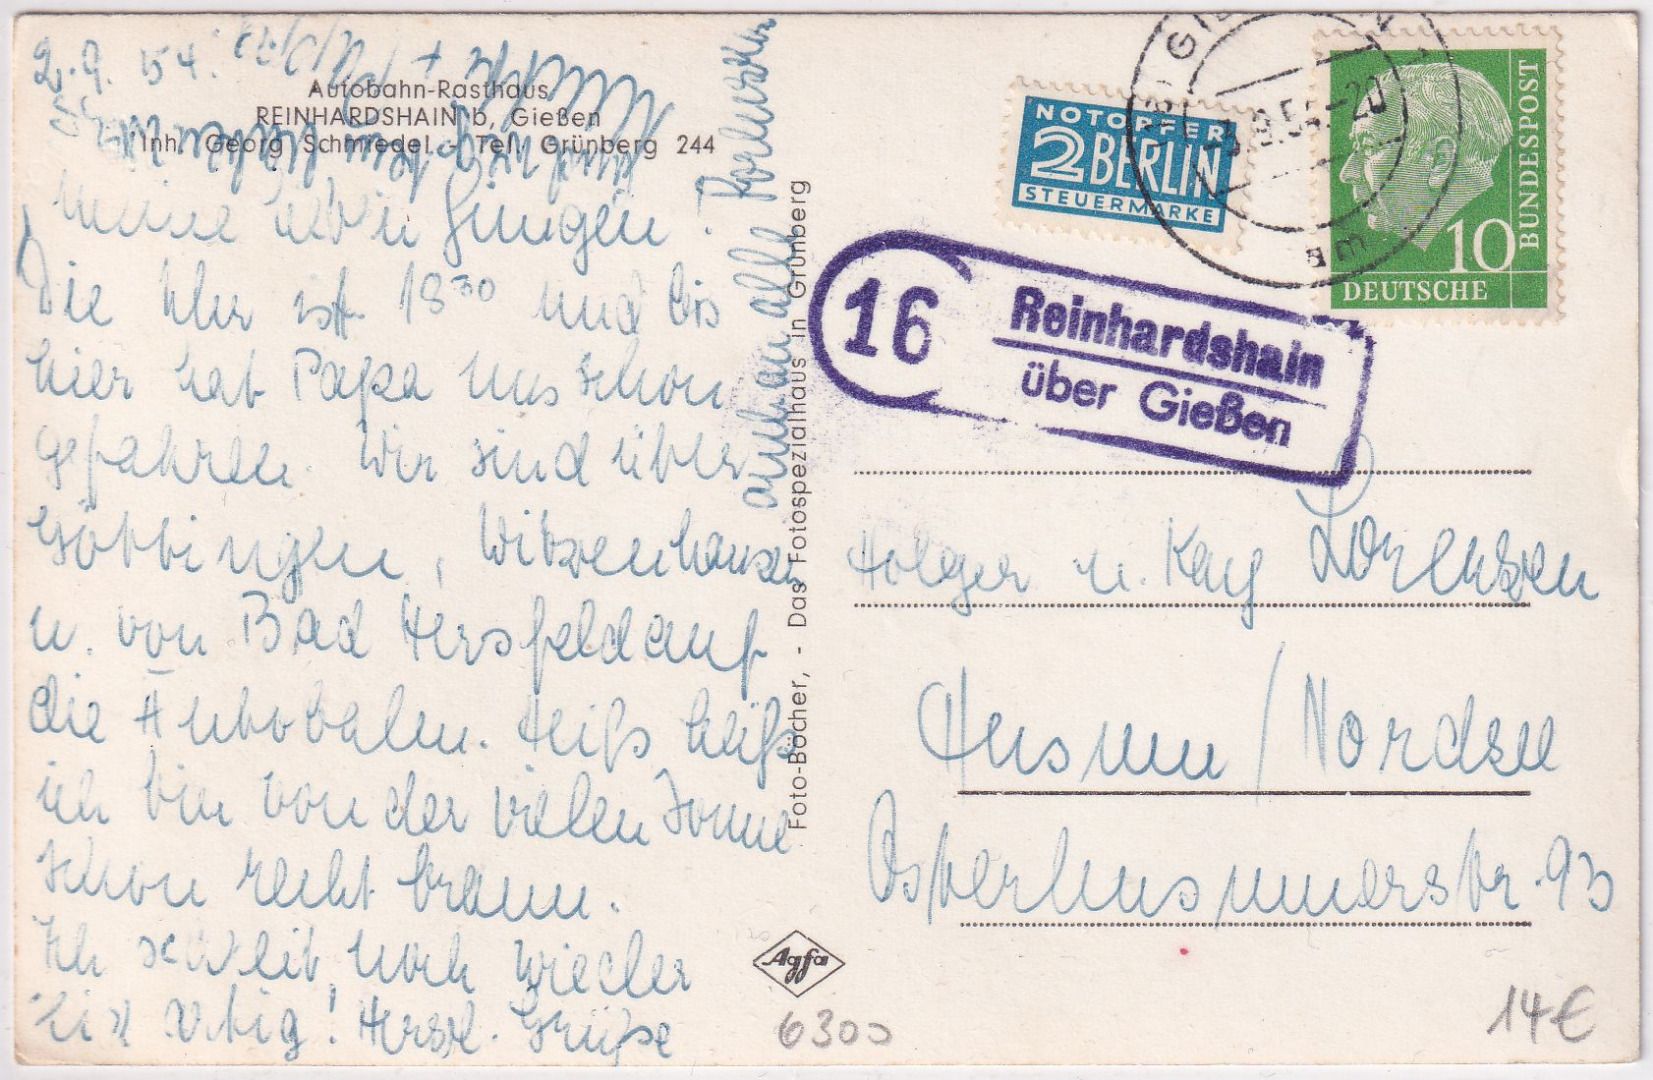 2.9.54.
Autobahn-Rasthaus
REINHARDSHAIN b. Gießen
Inh. Georg Schmiedel - Tel. Grünberg 244
Meine lieben Jungen!
Die Uhr ist 18³⁰ und bis
hier hat Papa uns schon
gefahren. Wir sind über
Göttingen, Witzenhausen
u. von Bad Hersfeld auf
die Autobahn. Heiß heiß
ich bin von der vielen Sonne
schon recht braun.
Ich schreib noch wieder
Herzl. Grüße
auch an alle
Foto-Bücher, - Das Fotospezialhaus in Grünberg
Agfa
6300
NOTOPFER
2 BERLIN
STEUERMARKE
DEUTSCHE
BUNDESPOST
10
16
Reinhardshain
über Gießen
Holger u. Kay Lorenzen
Husum / Nordsee
Osterhusumerstr. 93
14€